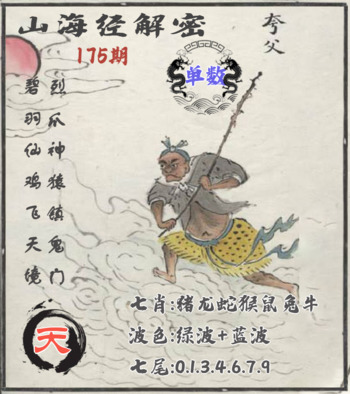 山海经解密
175期
夸父
单数
烈爪神猿镇鬼门
碧羽仙鸡飞天境
天
七肖:猪龙蛇猴鼠兔牛
波色:绿波+蓝波
七尾:0.1.3.4.6.7.9